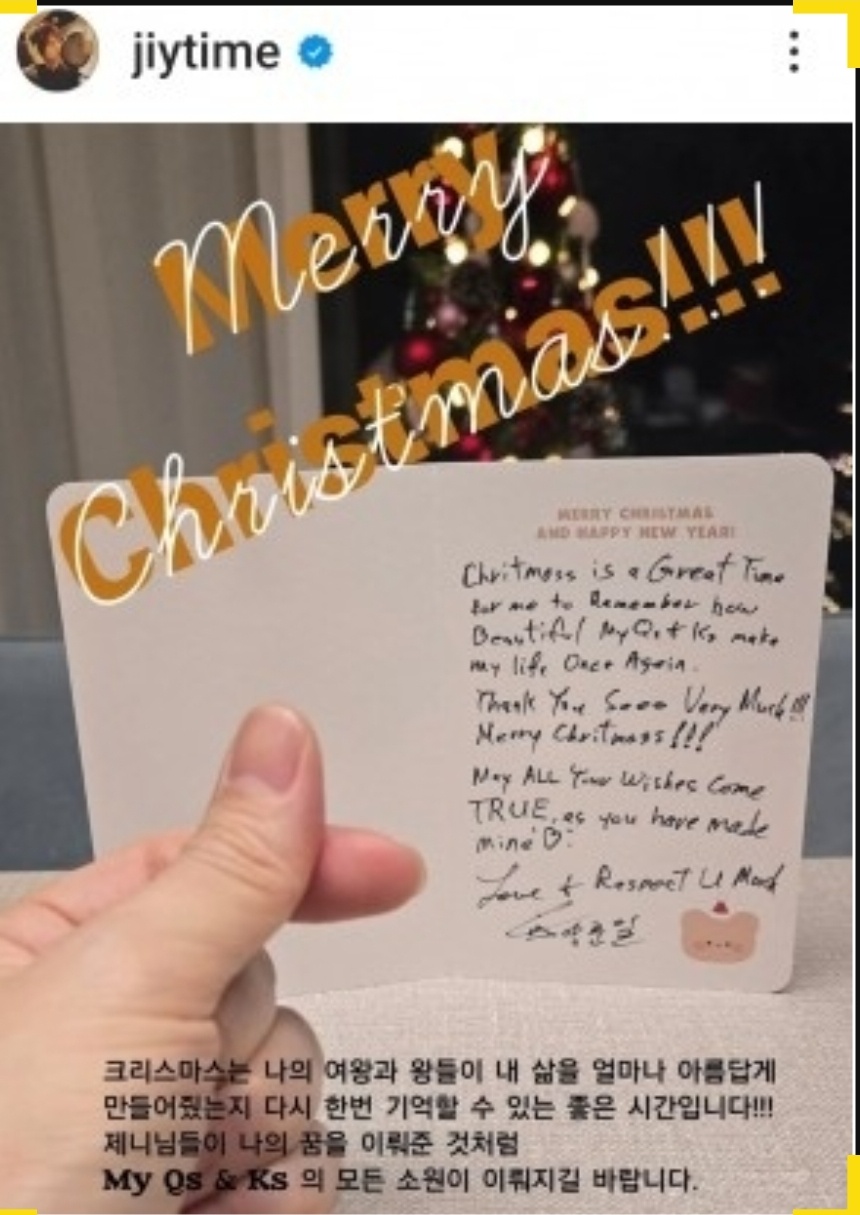 jiytime
Merry
Christmas!!!
MERRY CHRISTMAS
AND HAPPY NEW YEAR!
Chritmass is a Great Time
for me to Remember how
Beautiful My Qs & Ks make
my life Once Again.
Thank You Sooo Very Much!!!
Merry Chritmass!!!
May ALL Your Wishes Come
TRUE, as you have made
mine♡!
Love & Respect U Much
양준일
크리스마스는 나의 여왕과 왕들이 내 삶을 얼마나 아름답게
만들어줬는지 다시 한번 기억할 수 있는 좋은 시간입니다!!!
제니님들이 나의 꿈을 이뤄준 것처럼
My Qs & Ks 의 모든 소원이 이뤄지길 바랍니다.